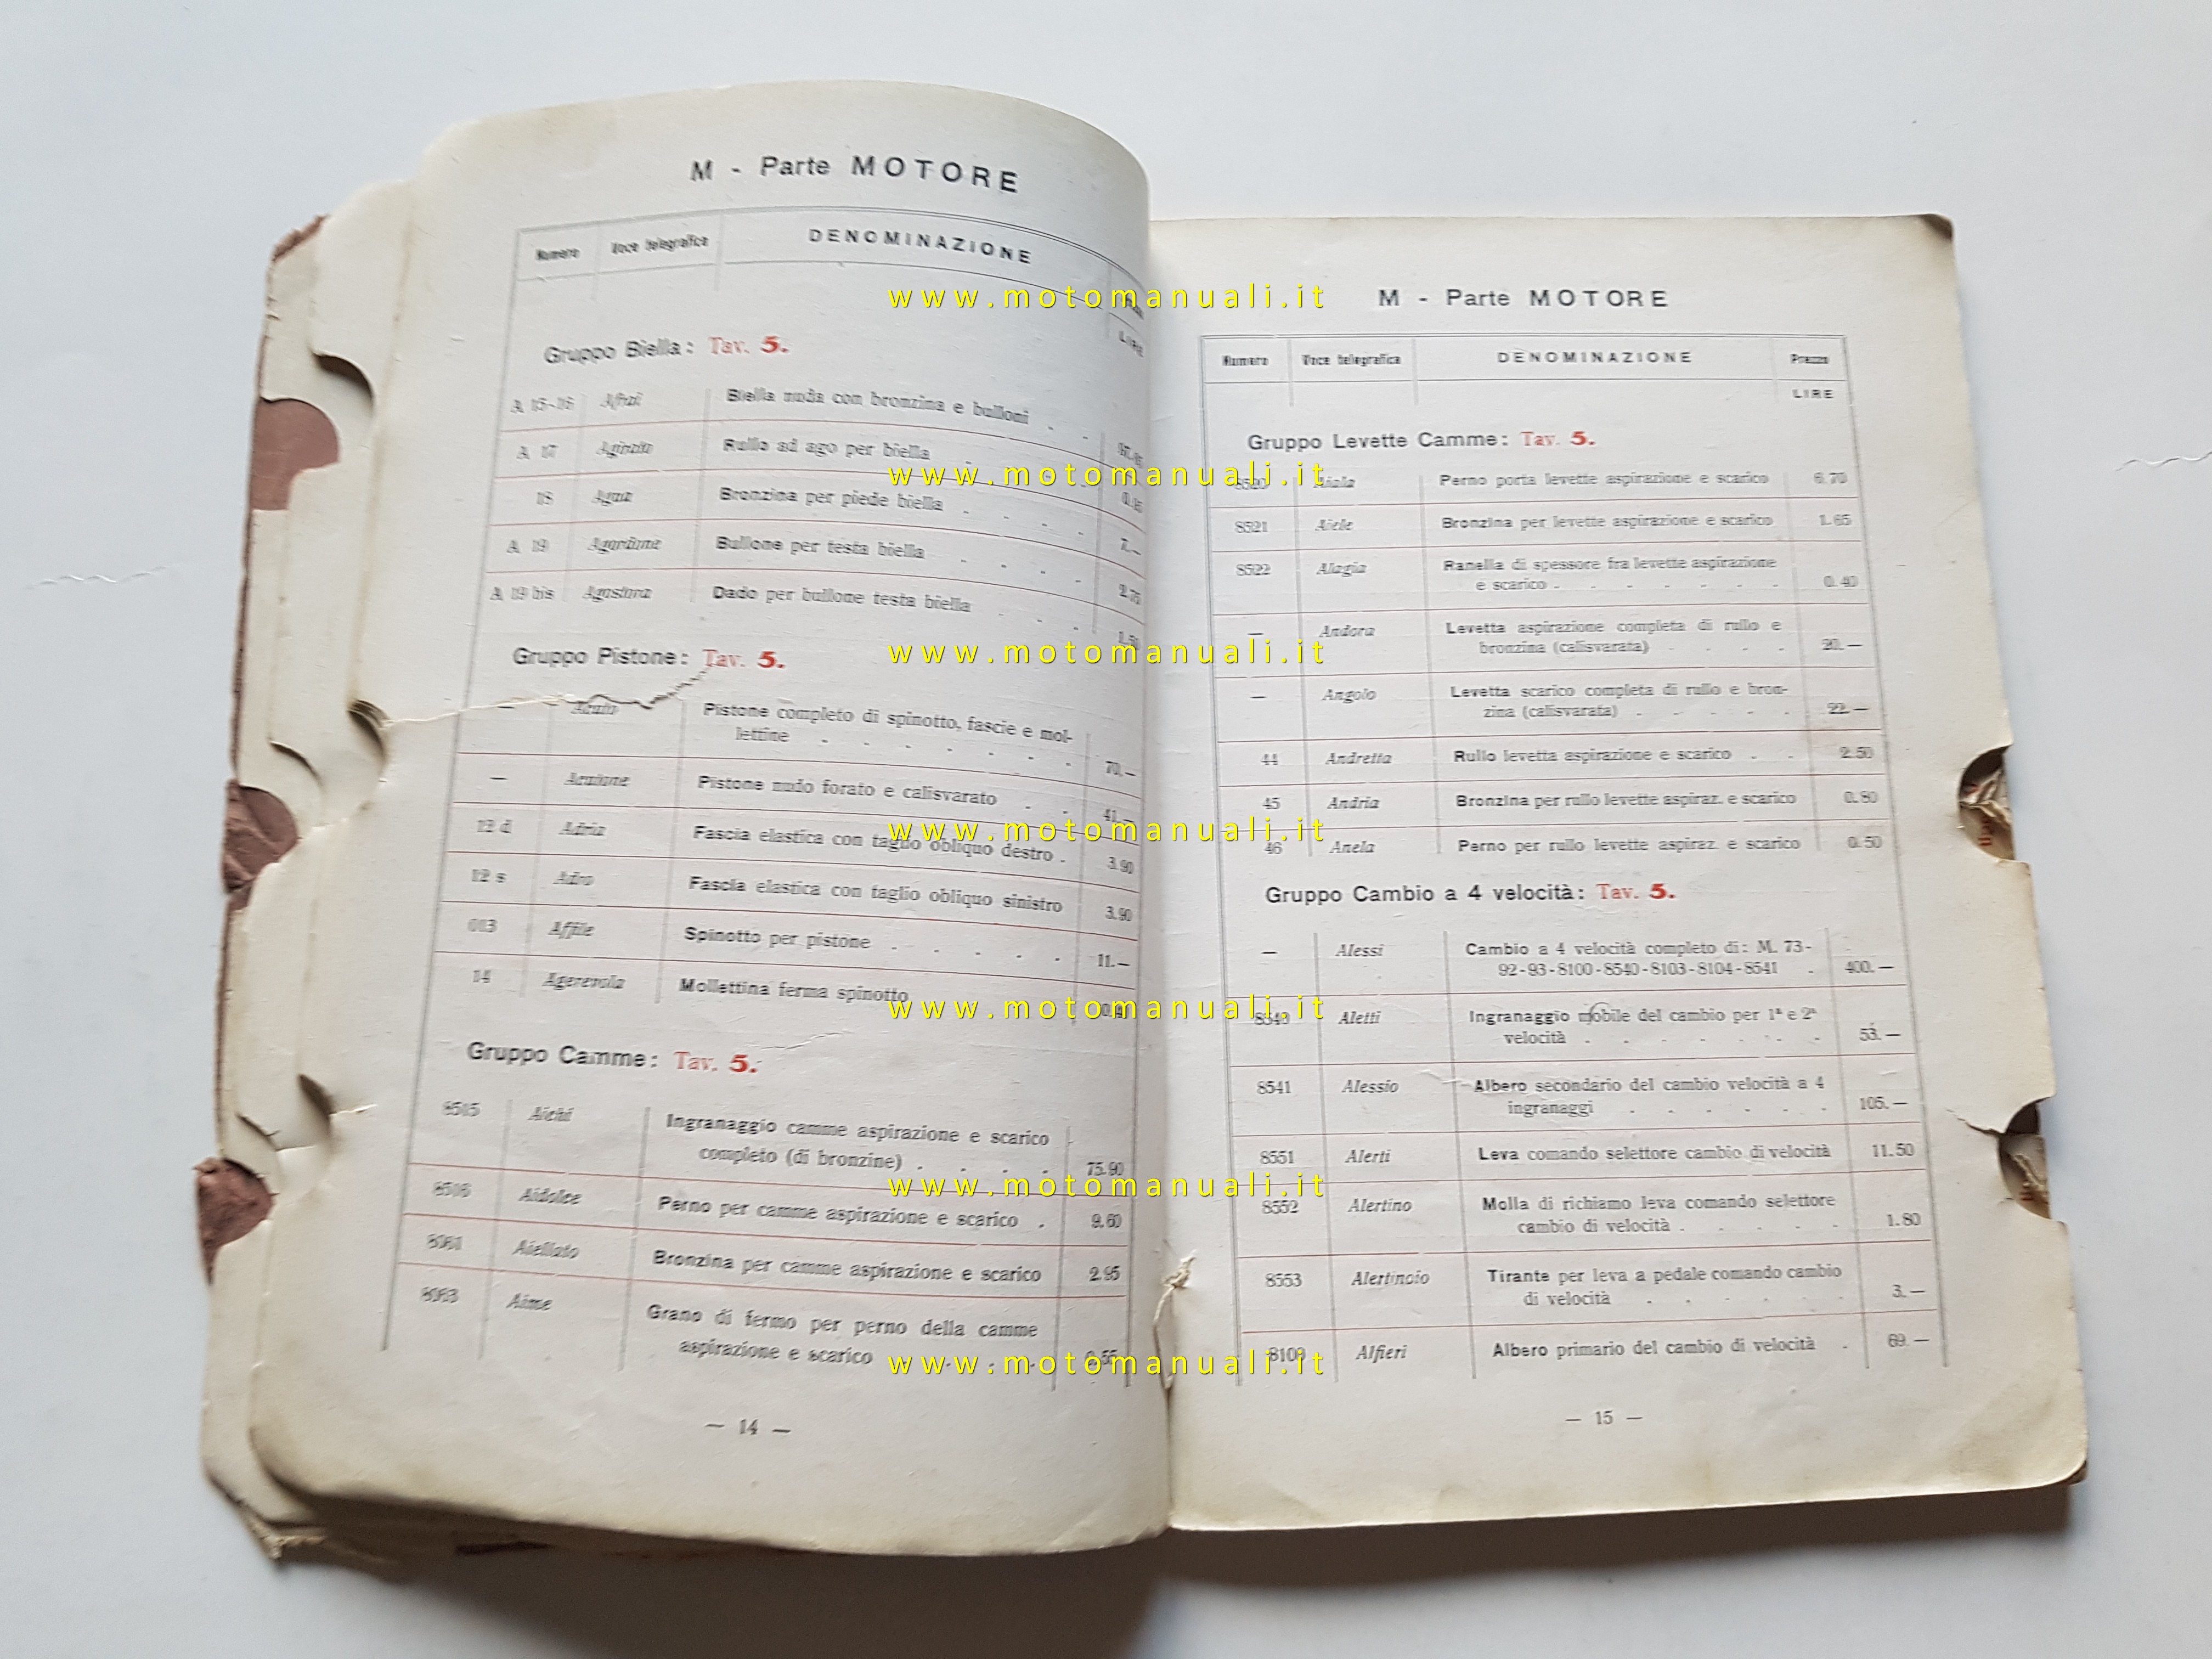 M - Parte MOTORE
Numero Voce telegrafica DENOMINAZIONE
LIRE
Gruppo Biella: Tav. 5.
A 15-16 Biella nuda con bronzina e bulloni
A 17 Rullo ad ago per biella
18 Agua Bronzina per piede biella 7.—
A 19 Bullone per testa biella 2.75
A 19 bis Dado per bullone testa biella 1.50
Gruppo Pistone: Tav. 5.
— Pistone completo di spinotto, fascie e mol-
lettine 70.—
— Pistone nudo forato e calisvarato 41.—
12 d Adria Fascia elastica con taglio obliquo destro . 3.90
12 s Adro Fascia elastica con taglio obliquo sinistro 3.90
013 Affile Spinotto per pistone 11.—
14 Agerevola Mollettina ferma spinotto
Gruppo Camme: Tav. 5.
8515 Aichi Ingranaggio camme aspirazione e scarico
completo (di bronzine) 75.90
8516 Aidolce Perno per camme aspirazione e scarico . 9.60
Aiellato Bronzina per camme aspirazione e scarico 2.95
Aime Grano di fermo per perno della camme
aspirazione e scarico
— 14 —
M - Parte MOTORE
Numero Voce telegrafica DENOMINAZIONE Prezzo
LIRE
Gruppo Levette Camme: Tav. 5.
8520 Aiala Perno porta levette aspirazione e scarico 6.70
8521 Aiele Bronzina per levette aspirazione e scarico 1.65
8522 Alagia Ranella di spessore fra levette aspirazione
e scarico . 0.40
— Andora Levetta aspirazione completa di rullo e
bronzina (calisvarata) 20.—
— Angolo Levetta scarico completa di rullo e bron-
zina (calisvarata) 22.—
44 Andretta Rullo levetta aspirazione e scarico 2.50
45 Andria Bronzina per rullo levette aspiraz. e scarico 0.80
46 Anela Perno per rullo levette aspiraz. e scarico 0.50
Gruppo Cambio a 4 velocità: Tav. 5.
— Alessi Cambio a 4 velocità completo di: M. 73-
92-93-8100-8540-8103-8104-8541 . 400.—
8540 Aletti Ingranaggio mobile del cambio per 1ª e 2ª
velocità 53.—
8541 Alessio Albero secondario del cambio velocità a 4
ingranaggi 105.—
8551 Alerti Leva comando selettore cambio di velocità 11.50
8552 Alertino Molla di richiamo leva comando selettore
cambio di velocità . 1.80
8553 Alertinoio Tirante per leva a pedale comando cambio
di velocità 3.—
8109 Alfieri Albero primario del cambio di velocità . 69.—
— 15 —
www.motomanuali.it
www.motomanuali.it
www.motomanuali.it
www.motomanuali.it
www.motomanuali.it
www.motomanuali.it
www.motomanuali.it